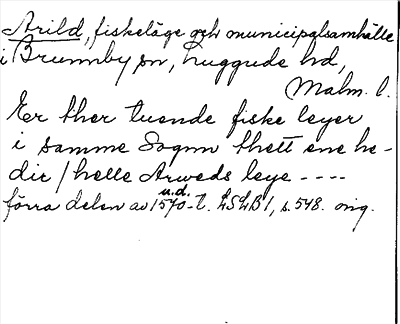 Arild, fiskeläge och municipalsamhälle
i Brunnby sn, Luggude hd,
Malm. l.
Er ther tuende fiske leyer
i samme Sognn thett ene he-
der / helle Arweds leye ----
u.d.
förra delen av 1570-t. LSLB 1, s. 548. orig.